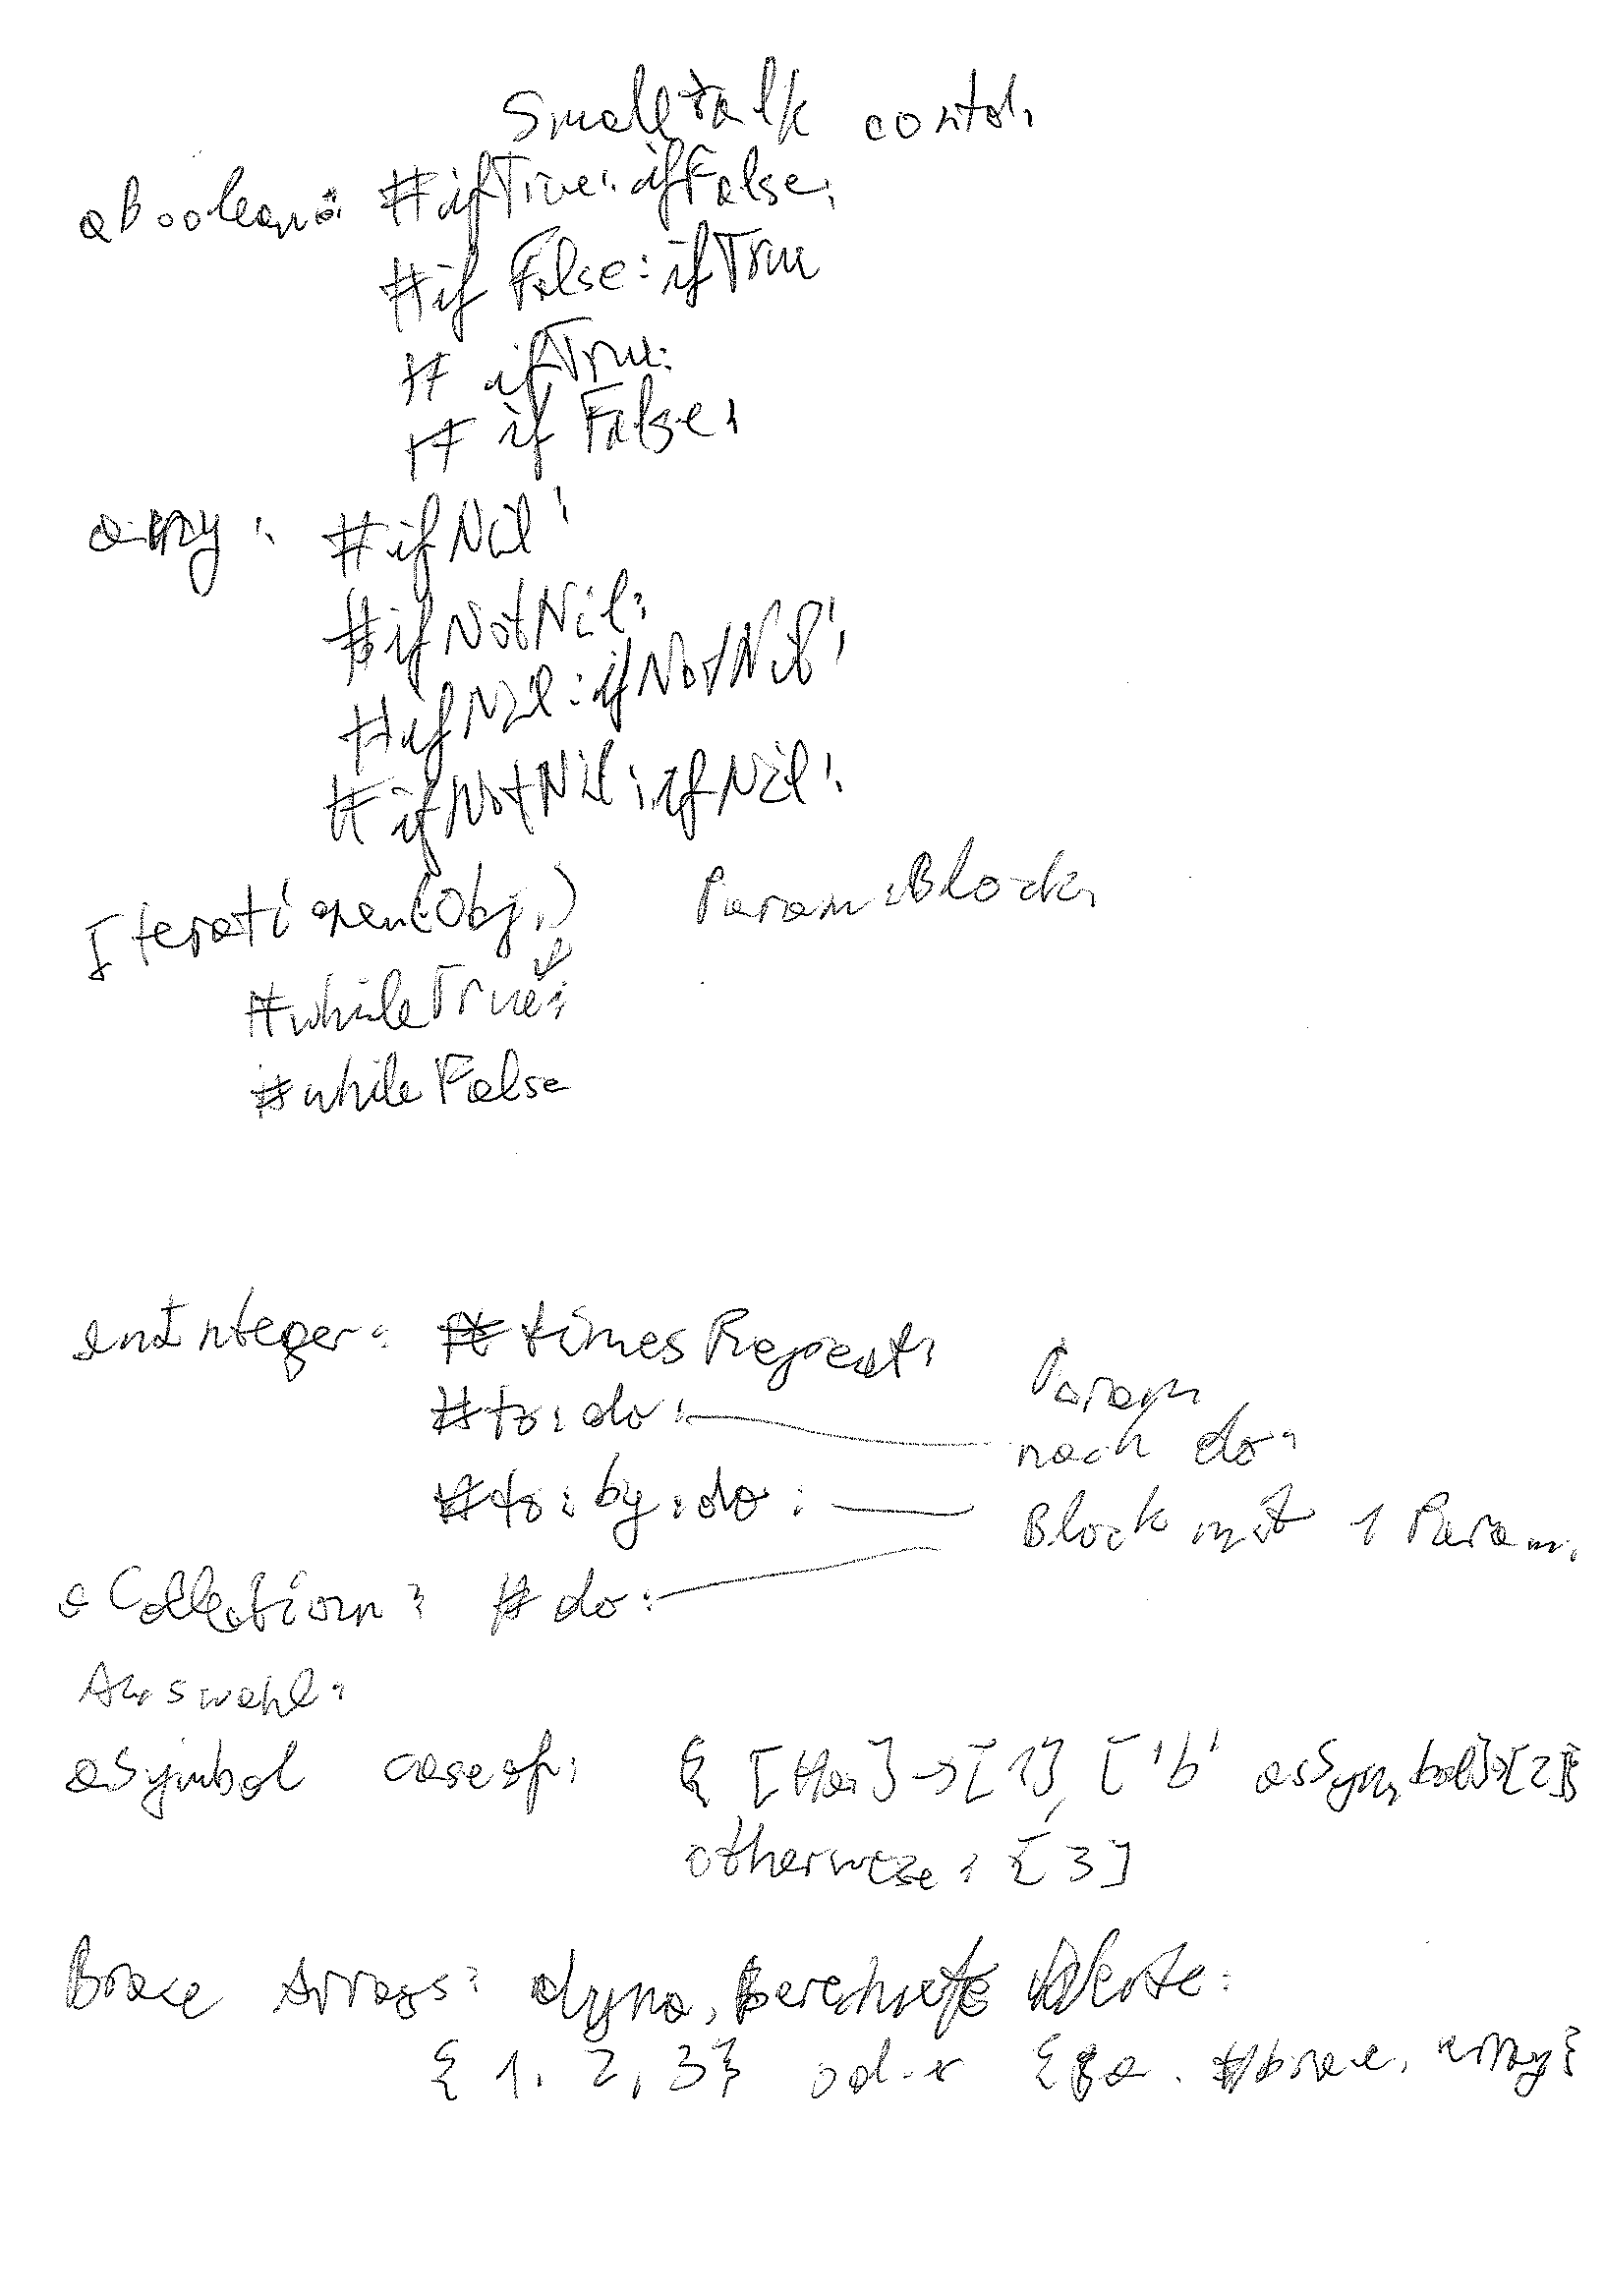 Smalltalk contd.
aBoolean: #ifTrue: ifFalse:
#ifFalse: ifTrue
# ifTrue:
# ifFalse:
any: #ifNil:
#ifNotNil:
#ifNil: ifNotNil:
#ifNotNil: ifNil:
Iterationen (Obj.) Param: Block,
#whileTrue:
#whileFalse
anInteger: #timesRepeat:
#to: do: Param
nach do:
#to: by: do: Block mit 1 Param.
aCollection: #do:
Auswahl:
aSymbol caseof: { [#a]->[1], ['b' asSymbol]->[2]}
otherwise: [3]
Brace Arrays: dyna, berechnete Werte:
{ 1. 2. 3} oder {#a. #brace. array}